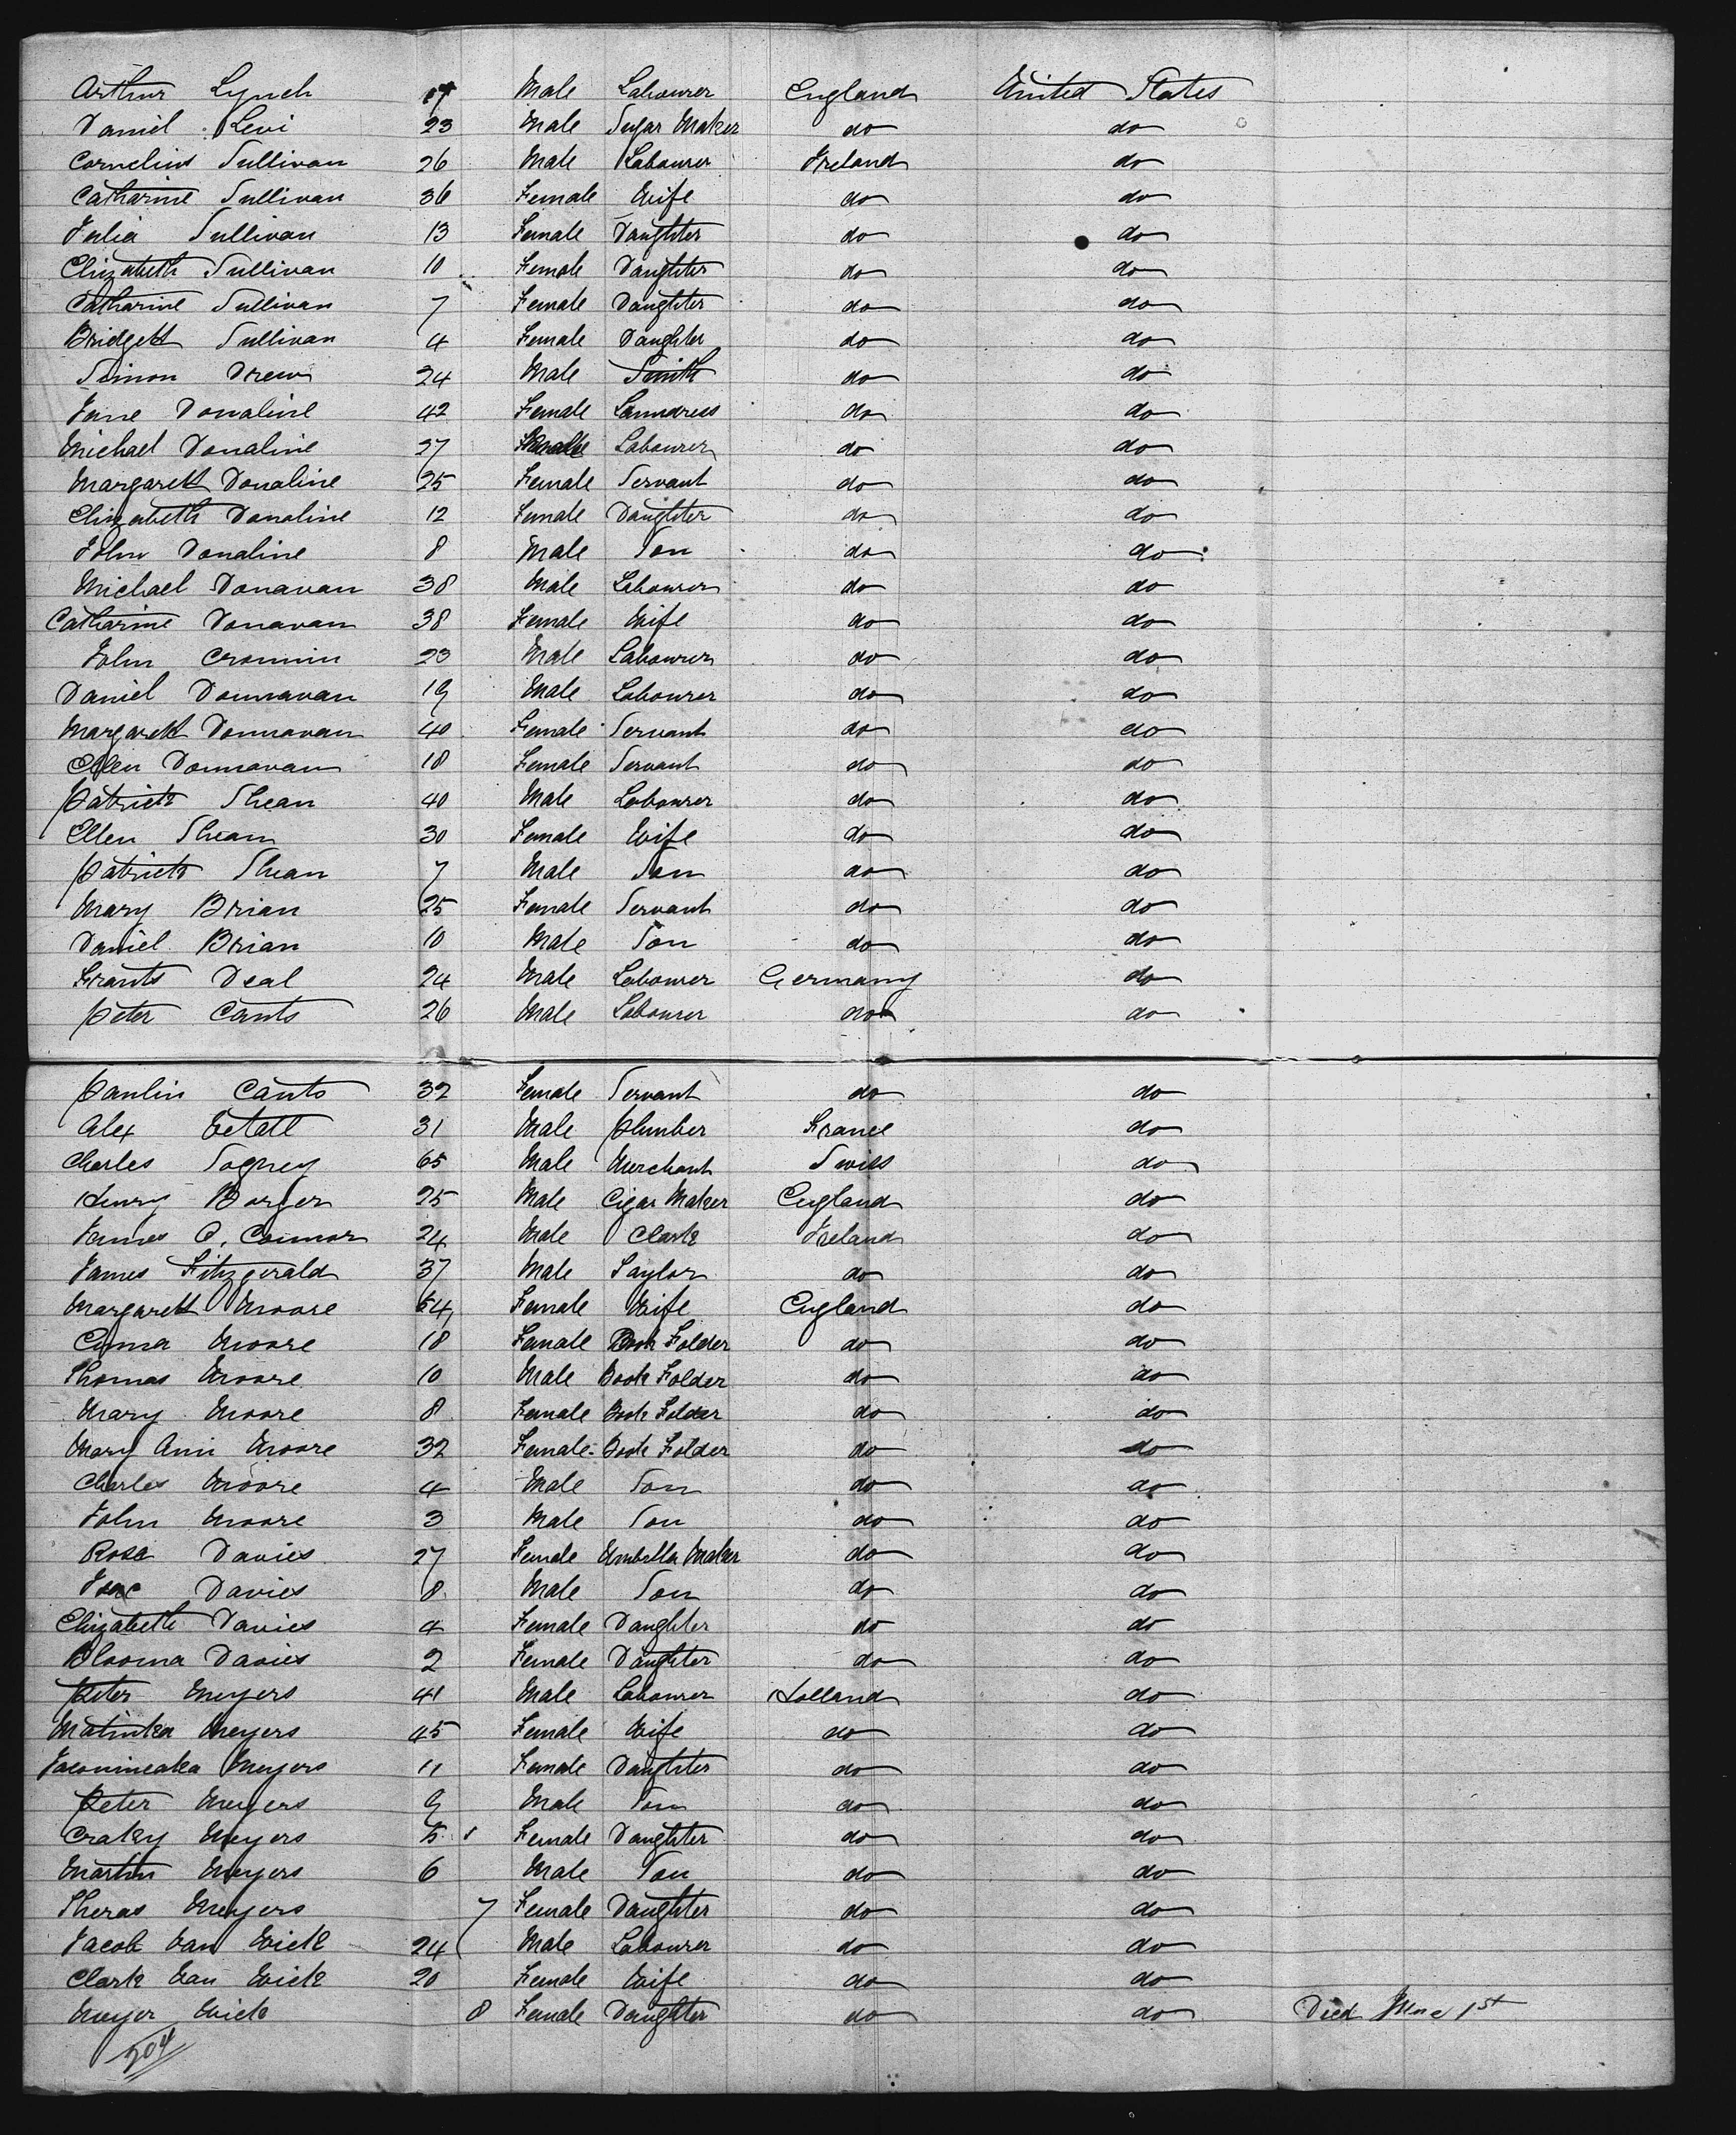 Arthur Lynch 17 Male Labourer England United States
Daniel Levi 23 Male Sugar Maker do do
Cornelius Sullivan 26 Male Labourer Ireland do
Catharine Sullivan 36 Female Wife do do
Julia Sullivan 13 Female Daughter do do
Elizabeth Sullivan 10 Female Daughter do do
Catharine Sullivan 7 Female Daughter do do
Bridgett Sullivan 4 Female Daughter do do
Simon Drew 24 Male Smith do do
Jane Donaline 42 Female Laundress do do
Michael Donaline 27 Male Labourer do do
Margarett Donaline 25 Female Servant do do
Elizabeth Donaline 12 Female Daughter do do
John Donaline 8 Male Son do do
Michael Donavan 38 Male Labourer do do
Catharine Donavan 38 Female Wife do do
John Cronnin 23 Male Labourer do do
Daniel Donnavan 19 Male Labourer do do
Margarett Donnavan 40 Female Servant do do
Ellen Donnavan 18 Female Servant do do
Patrick Shean 40 Male Labourer do do
Ellen Shean 30 Female Wife do do
Patrick Shean 7 Male Son do do
Mary Brian 25 Female Servant do do
Daniel Brian 10 Male Son do do
Frants Deal 24 Male Labourer Germany do
Peter Cants 26 Male Labourer do do
Paulin Cants 32 Female Servant do do
Alex 31 Male Plumber France do
Charles Sogney 65 Male Merchant Swiss do
Henry Borger 25 Male Cigar Maker England do
James O. Connor 24 Male Clark Ireland do
James Fitzgerald 37 Male Taylor do do
Margarett Moore 54 Female Wife England do
Emma Moore 18 Female Book Folder do do
Thomas Moore 10 Male Book Folder do do
Mary Moore 8 Female Book Folder do do
Mary Ann Moore 32 Female Book Folder do do
Charles Moore 4 Male Son do do
John Moore 3 Male Son do do
Rosa Davies 27 Female Umbrella Maker do do
Davies 8 Male Son do do
Elizabeth Davies 4 Female Daughter do do
Blooma Davies 2 Female Daughter do do
Peter Meyers 41 Male Labourer Holland do
Matinka Meyers 45 Female Wife do do
Meyers 11 Female Daughter do do
Peter Meyers 9 Male Son do do
Craky Meyers 5 Female Daughter do do
Martin Meyers 6 Male Son do do
Theras Meyers 7 Female Daughter do do
Jacob Van Wick 24 Male Labourer do do
Clark Van Wick 20 Female Wife do do
Meyer Wick 8 Female Daughter do do Died June 1st
204